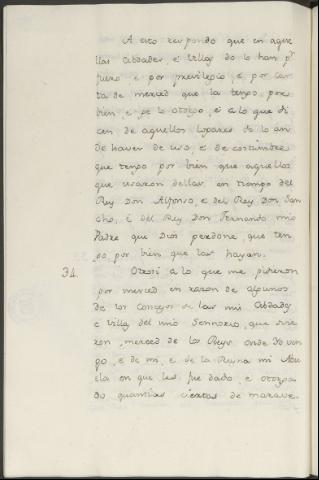 A esto respondo que en aque-
llas Cibdades, e Villas do lo han pr
fuero e por previlegio, e por car-
ta de merced que la tengo por
bien, e ge lo otorgo, e a lo que di-
cen de aquellos logares do lo an
de haver de uso, e de costumbre
que tengo por bien que aquellos
que usaron dellas en tiempo del
Rey Don Alfonso, e del Rey Don San-
cho, e del Rey Don Fernando mio
Padre que Dios perdone, que ten-
go por bien que las hayan.
34. Otrosi a lo que me pidieron
por merced en razon de algunos
de los Concejos de las mis Cibdades
e Villas del mio Sennorio, que ovie-
ron, merced de los Reys onde Yo ven-
go, e de mi, e de la Reyna mi Abu-
ela en que les fue dado, e otorga-
do quantias ciertas de marave-